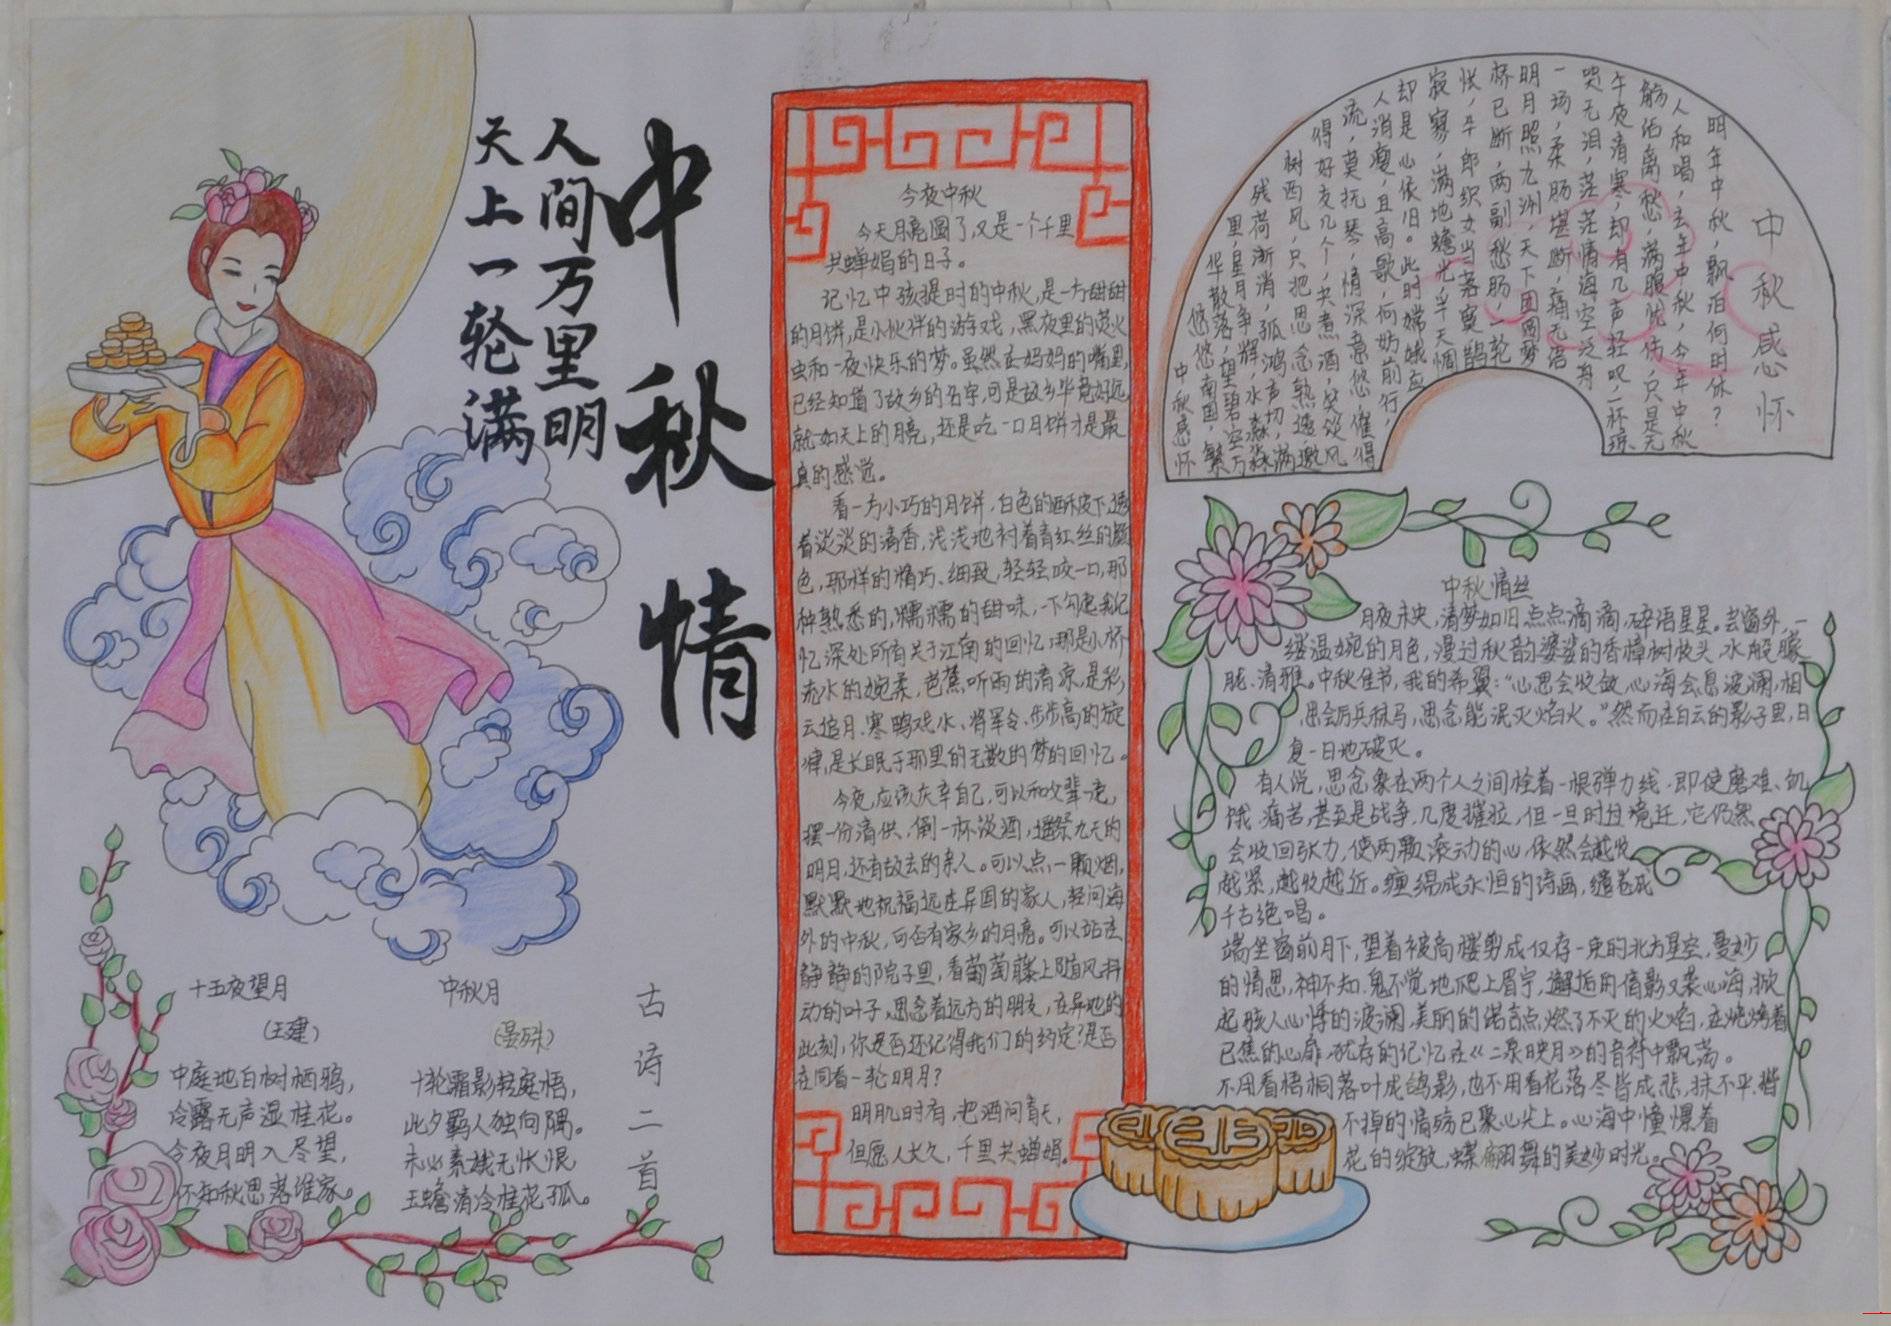 中秋情
人间万里明
天上一轮满
十五夜望月
（王建）
中庭地白树栖鸦，
冷露无声湿桂花。
今夜月明人尽望，
不知秋思落谁家。
中秋月
（晏殊）
十轮霜影转庭梧，
此夕羁人独向隅。
未必素娥无怅恨，
玉蟾清冷桂花孤。
古诗二首
今夜中秋
今天月亮圆了，又是一个千里
共婵娟的日子。
记忆中孩提时的中秋，是一方甜甜
的月饼，是小伙伴的游戏，黑夜里的萤火
虫和一夜快乐的梦。虽然在妈妈的嘴里，
已经知道了故乡的名字，可是故乡毕竟好远
就如天上的月亮，还是吃一口月饼才是最
真的感觉。
看一方小巧的月饼，白色的酥皮下，透
着淡淡的清香，浅浅地衬着青红丝的颜
色，那样的精巧、细致，轻轻咬一口，那
种熟悉的，糯糯的甜味，一下勾起我记
忆深处所有关于江南的回忆；那是小桥
流水的婉柔，芭蕉听雨的清凉，是彩
云追月、寒鸭戏水、将军令、步步高的旋
律，是长眠于那里的无数的梦的回忆。
今夜，应该庆幸自己，可以和父辈一起，
摆一份清供，倒一杯淡酒，遥祭九天的
明月，还有故去的亲人。可以点一颗烟，
默默地祝福远在异国的家人，轻问海
外的中秋，可否有家乡的月亮。可以站在
静静的院子里，看葡萄藤上随风抖
动的叶子，思念着远方的朋友，在异地的
此刻，你是否还记得我们的约定？是否
在同看一轮明月？
明月几时有，把酒问青天，
但愿人长久，千里共婵娟。
中秋感怀
明年中秋，飘泊何时休？
人和唱，去年中秋，今年中秋
觞佰离愁，满腹忧伤，只是无
午夜清寒，却有几声轻叹，一杯琼
哭无泪，茫茫情海空泛舟
一场，柔肠堪断，痛无语
明月照九洲，天下团圆梦
桥已断，两副愁肠，一轮
怅，牛郎织女当落寞，鹊
寂寥，满地蟾光，半天惆
却是心依旧。此时嫦娥应
人消瘦，且高歌，何妨前行，
流，莫抚琴，情深意悠，催得
得好友几个，共煮酒，笑谈风
树西风，只把思念熟透，邀
残荷渐消，孤鸿声切，满
里，星月争辉，水淼淼
华散落，望碧空万
悠悠南国，繁
中秋感怀
中秋情丝
月夜未央，清梦如旧，点点滴滴，碎语星星。芸窗外，一
缕温婉的月色，漫过秋韵婆娑的香樟树枝头，水般朦
胧、清雅。中秋佳节，我的希翼：“心思会收敛，心海会息波澜，相
思会厉兵秣马，思念能泯灭焰火。”然而在白云的影子里，日
复一日地破灭。
有人说，思念象在两个人之间栓着一根弹力线，即使磨难、饥
饿、痛苦，甚至是战争，几度摧拉，但一旦时过境迁，它仍然
会收回张力，使两颗滚动的心，依然会越收
越紧，越收越近。缠绵成永恒的诗画，缱卷成
千古绝唱。
端坐窗前月下，望着被高楼剪成仅存一束的北方星空，曼妙
的情思，神不知，鬼不觉地爬上眉宇，邂逅的倩影又袭心海，掀
起骇人心悸的波澜，美丽的诺言点燃了不灭的火焰，在烧烤着
已焦的心扉，犹存的记忆在《二泉映月》的音符中飘荡。
不用看梧桐落叶成鸽影，也不用看花落尽皆成悲，抹不平，揩
不掉的情殇已聚心尖上。心海中憧憬着
花的绽放，蝶翩舞的美妙时光。